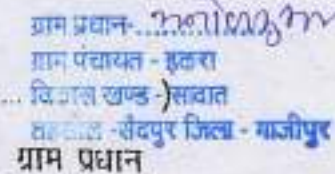 ग्राम प्रधान-
ग्राम पंचायत - हकरा
विकास खण्ड-सादात
तहसील -सैदपुर जिला - गाजीपुर
ग्राम प्रधान